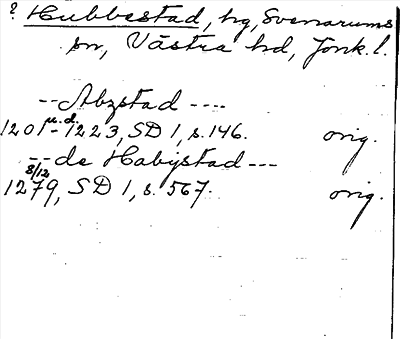 ? Hubbestad, hg, Svenarums
sn, Västra hd, Jönk. l.
-- Abzstad ----
1201-1223 u.d., SD 1, s. 146. orig.
-- de Habystad ---
1279 8/12, SD 1, s. 567. orig.